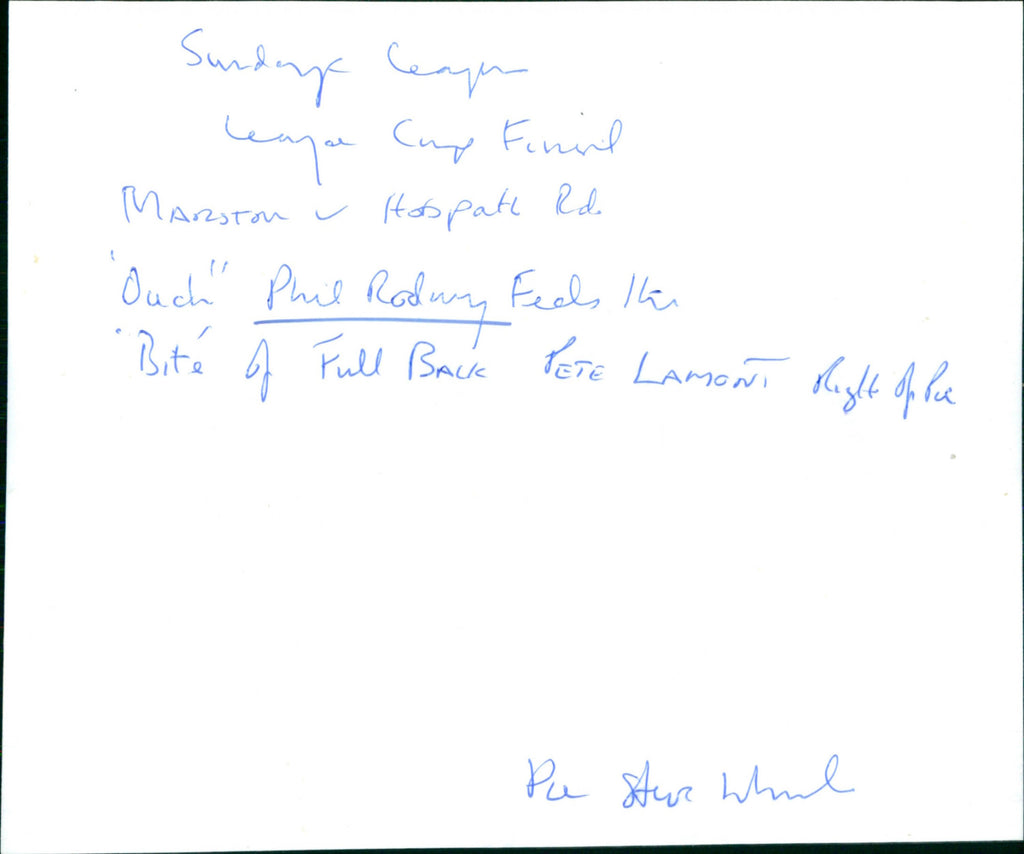 Sunday League
League Cup Final
MARSTON v Horspath Rd.
"Ouch" Phil Rodway Feels the
"Bite" of Full BACK PETE LAMONT Right of Pic
Pic Steve